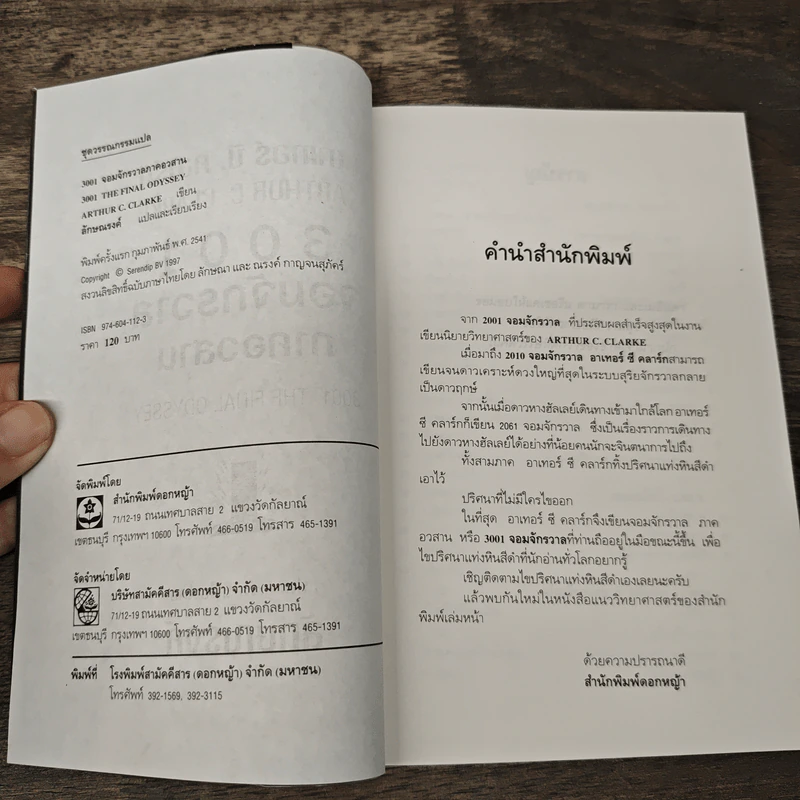 ชุดวรรณกรรมแปล
3001 จอมจักรวาลภาคอวสาน
3001 THE FINAL ODYSSEY
ARTHUR C. CLARKE เขียน
ลักษณรงค์ แปลและเรียบเรียง
พิมพ์ครั้งแรก กุมภาพันธ์ พ.ศ. 2541
Copyright © Serendip BV 1997
สงวนลิขสิทธิ์ฉบับภาษาไทยโดย ลักษณา และ ณรงค์ กาญจนสุภัคร์
ISBN 974-604-112-3
ราคา 120 บาท
จัดพิมพ์โดย
สำนักพิมพ์ดอกหญ้า
71/12-19 ถนนเทศบาลสาย 2 แขวงวัดกัลยาณ์
เขตธนบุรี กรุงเทพฯ 10600 โทรศัพท์ 466-0519 โทรสาร 465-1391
จัดจำหน่ายโดย
บริษัทสามัคคีสาร (ดอกหญ้า) จำกัด (มหาชน)
71/12-19 ถนนเทศบาลสาย 2 แขวงวัดกัลยาณ์
เขตธนบุรี กรุงเทพฯ 10600 โทรศัพท์ 466-0519 โทรสาร 465-1391
พิมพ์ที่ โรงพิมพ์สามัคคีสาร (ดอกหญ้า) จำกัด (มหาชน)
โทรศัพท์ 392-1569, 392-3115
คำนำสำนักพิมพ์
จาก 2001 จอมจักรวาล ที่ประสบผลสำเร็จสูงสุดในงาน
เขียนนิยายวิทยาศาสตร์ของ ARTHUR C. CLARKE
เมื่อมาถึง 2010 จอมจักรวาล อาเทอร์ ซี คลาร์กสามารถ
เขียนจนดาวเคราะห์ดวงใหญ่ที่สุดในระบบสุริยจักรวาลกลาย
เป็นดาวฤกษ์
จากนั้นเมื่อดาวหางฮัลเลย์เดินทางเข้ามาใกล้โลก อาเทอร์
ซี คลาร์กก็เขียน 2061 จอมจักรวาล ซึ่งเป็นเรื่องราวการเดินทาง
ไปยังดาวหางฮัลเลย์ได้อย่างที่น้อยคนนักจะจินตนาการไปถึง
ทั้งสามภาค อาเทอร์ ซี คลาร์กทิ้งปริศนาแท่งหินสีดำ
เอาไว้
ปริศนาที่ไม่มีใครไขออก
ในที่สุด อาเทอร์ ซี คลาร์กจึงเขียนจอมจักรวาล ภาค
อวสาน หรือ 3001 จอมจักรวาลที่ท่านถืออยู่ในมือขณะนี้ขึ้น เพื่อ
ไขปริศนาแท่งหินสีดำที่นักอ่านทั่วโลกอยากรู้
เชิญติดตามไขปริศนาแท่งหินสีดำเองเลยนะครับ
แล้วพบกันใหม่ในหนังสือแนววิทยาศาสตร์ของสำนัก
พิมพ์เล่มหน้า
ด้วยความปรารถนาดี
สำนักพิมพ์ดอกหญ้า